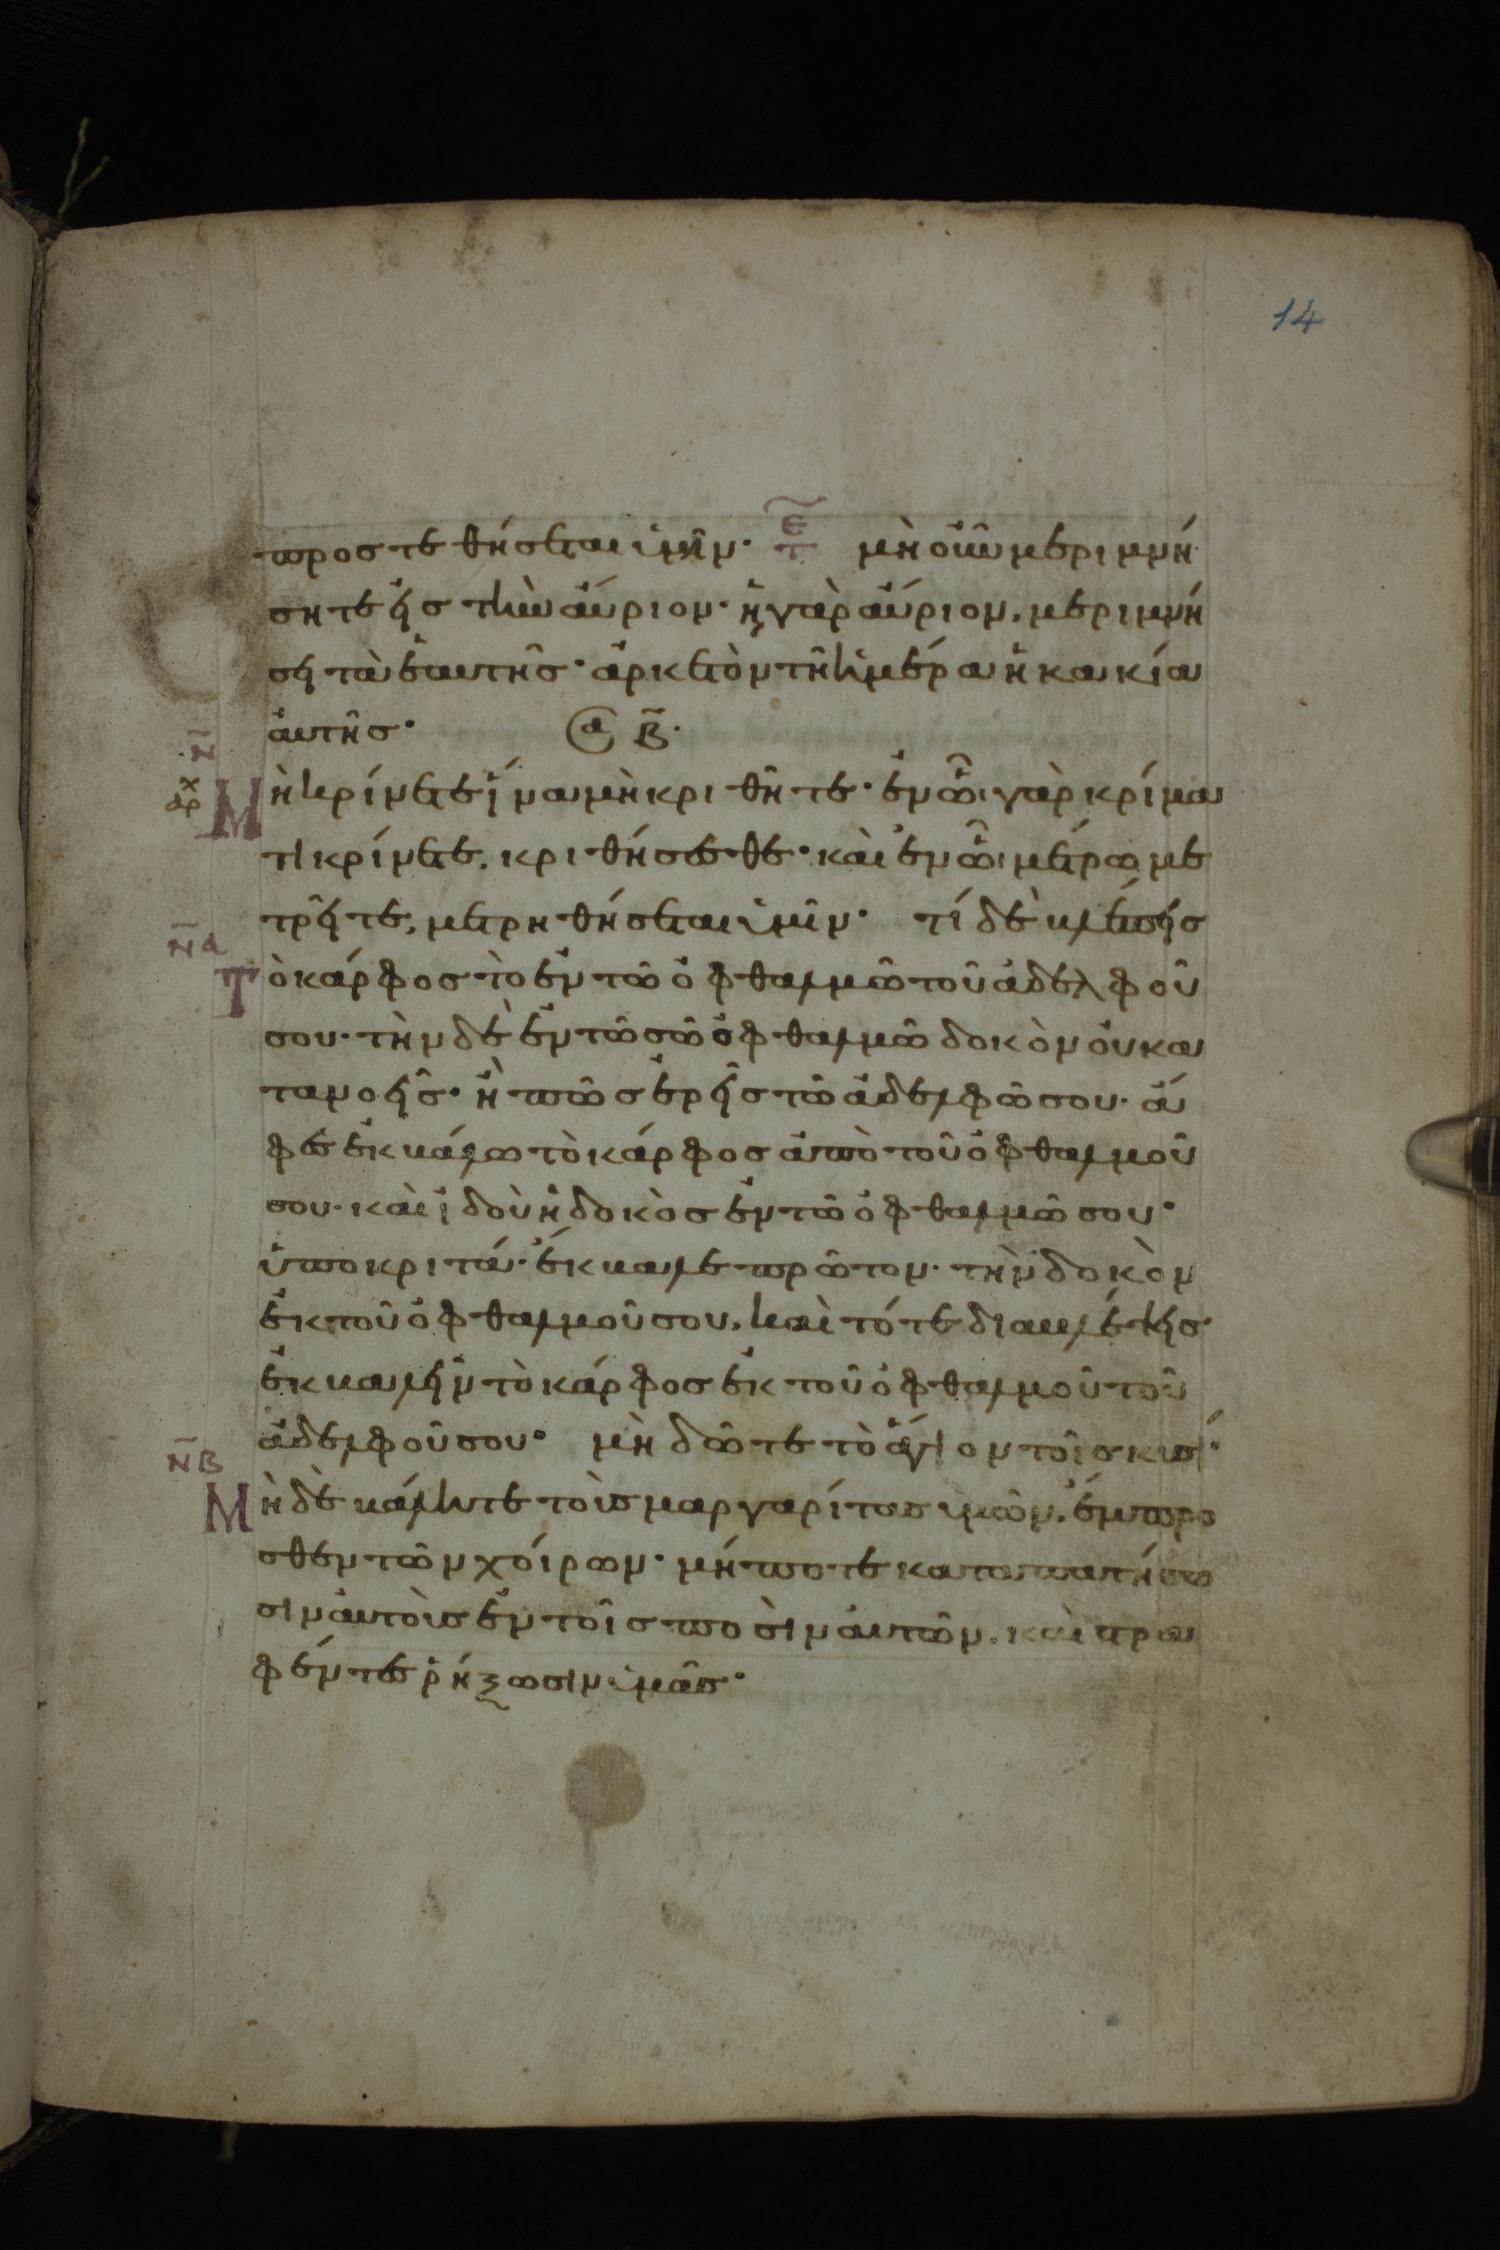 14
προστεθήσεται ὑμῖν· ε̃τ μὴ οὖν μεριμνή
σητε εἰς τὴν αὔριον· ἡ γὰρ αὔριον, μεριμνή
σει τὰ ἑαυτῆς· ἀρκετὸν τῆ ἡμέρα ἡ κακία
αὐτῆς· α β̃·
ν̃
αρχ
Μὴ κρίνετε ἵνα μὴ κριθῆτε· ἐν ὧι γὰρ κρίμα
τι κρίνετε, κριθήσεσθε· καὶ ἐν ὧι μέτρω με
τρεῖτε, μετρηθήσεται ὑμῖν· τί δὲ βλέπεις
ν̃α
Τὸ κάρφος τὸ ἐν τῶ ὀφθαλμῶ τοῦ ἀδελφοῦ
σου· τὴν δὲ ἐν τῶ σῶ ὀφθαλμῶ δοκὸν οὐ κα
τανοεῖς· ἢ πῶς ἐρεῖς τῶ ἀδελφῶ σου· ἄ
φες ἐκβάλω τὸ κάρφος ἀπὸ τοῦ ὀφθαλμοῦ
σου· καὶ ἰδοὺ ἡ δοκὸς ἐν τῶ ὀφθαλμῶ σου·
ὑποκριτά· ἔκβαλε πρῶτον· τὴν δοκὸν
ἐκ τοῦ ὀφθαλμοῦ σου, καὶ τότε διαβλέψεις
ἐκβαλεῖν τὸ κάρφος ἐκ τοῦ ὀφθαλμοῦ τοῦ
ἀδελφοῦ σου· μὴ δῶτε τὸ ἅγιον τοῖς κυσί·
ν̃β
Μηδὲ βάλητε τοὺς μαργαρίτας ὑμῶν, ἔμπρο
σθεν τῶν χοίρων· μήποτε καταπατήσω
σιν αὐτοὺς ἐν τοῖς ποσὶν αὐτῶν, καὶ στρα
φέντες ῥήξωσιν ὑμᾶς·